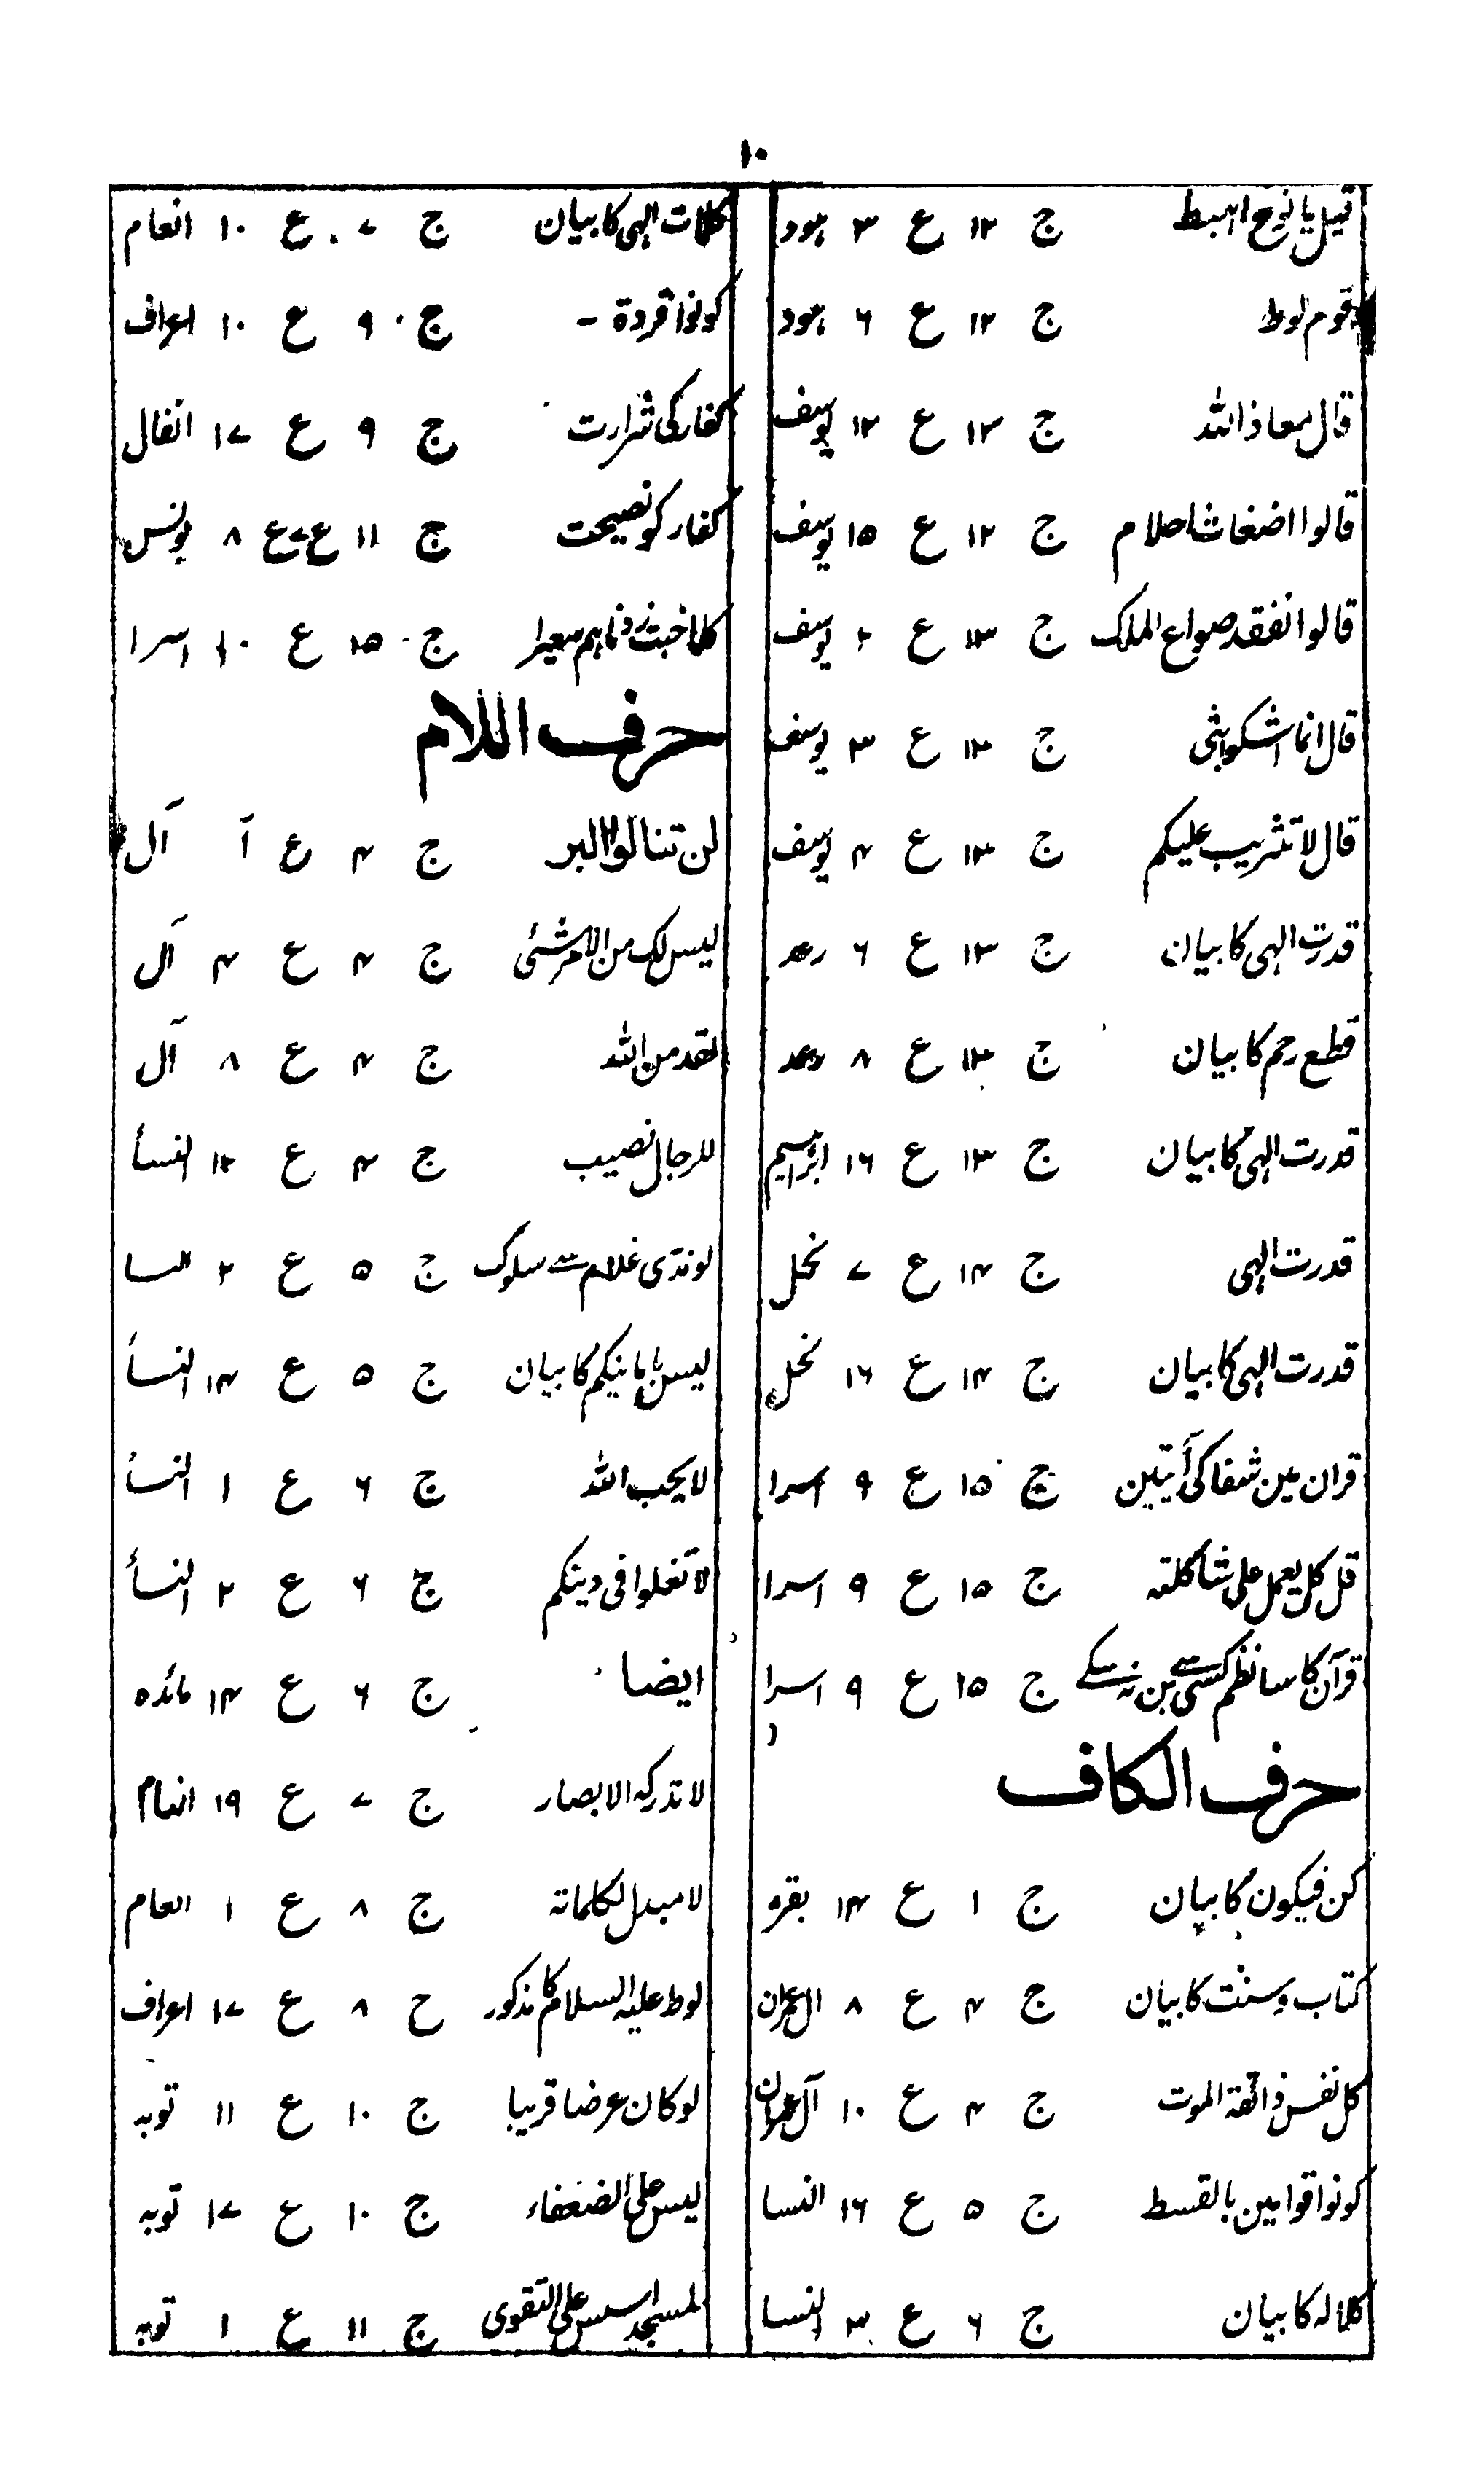 ۱۰
قیل یا نوح اہبط ج ۱۲ ع ۳ ہود
قوم لوط ج ۱۲ ع ۶ ہود
قال معاذ اللہ ج ۱۲ ع ۱۳ یوسف
قالوا اضغاث احلام ج ۱۲ ع ۱۵ یوسف
قالوا نفقد صواع الملک ج ۱۳ ع ۲ یوسف
قال انما اشکوا بثی ج ۱۳ ع ۳ یوسف
قال لا تثریب علیکم ج ۱۳ ع ۴ یوسف
قدرت الہی کا بیان ج ۱۳ ع ۶ رعد
قطع رحم کا بیان ج ۱۳ ع ۸ رعد
قدرت الہی کا بیان ج ۱۳ ع ۱۶ ابراہیم
قدرت الہی ج ۱۴ ع ۷ نحل
قدرت الہی کا بیان ج ۱۴ ع ۱۶ نحل
قران مین شفا کی آیتین ج ۱۵ ع ۹ اسرا
قل کل یعمل علی شاکلتہ ج ۱۵ ع ۹ اسرا
قرآن کا سا نظم کسی سے بن نہ سکے ج ۱۵ ع ۹ اسرا
حرف الکاف
کن فیکون کا بیان ج ۱ ع ۱۴ بقرہ
کتاب و سنت کا بیان ج ۴ ع ۸ ال عمران
کل نفس ذائقۃ الموت ج ۴ ع ۱۰ آل عمران
کونوا قوامین بالقسط ج ۵ ع ۱۶ النسا
کلالہ کا بیان ج ۶ ع ۳ النسا
کلمات الہی کا بیان ج ۷ ع ۱۰ انعام
کونوا قردۃ - ج ۹ ع ۱۰ اعراف
کفار کی شرارت ج ۹ ع ۱۷ انفال
کفار کو نصیحت ج ۱۱ ع ۷ ع ۸ یونس
کلما خبت زدناہم سعیرا ج ۱۵ ع ۱۰ اسرا
حرف اللام
لن تنالوا البر ج ۴ ع آ آل
لیس لک من الامر شئی ج ۴ ع ۴ آل
لقد من اللہ ج ۴ ع ۸ آل
للرجال نصیب ج ۴ ع ۱۲ النسأ
لونڈی غلام سے سلوک ج ۵ ع ۲ النسا
لیس بامانیکم کا بیان ج ۵ ع ۱۴ النسأ
لا یحب اللہ ج ۶ ع ۱ النسأ
لا تغلوا فی دینکم ج ۶ ع ۲ النسأ
ایضا ج ۶ ع ۱۴ مائدہ
لا تدرکہ الابصار ج ۷ ع ۱۹ انعام
لا مبدل لکلماتہ ج ۸ ع ۱ انعام
لوط علیہ السلام کا مذکور ج ۸ ع ۱۷ اعراف
لو کان عرضا قریبا ج ۱۰ ع ۱۱ توبہ
لیس علی الضعفاء ج ۱۰ ع ۱۷ توبہ
لمسجد اسس علی التقوی ج ۱۱ ع ۱ توبہ